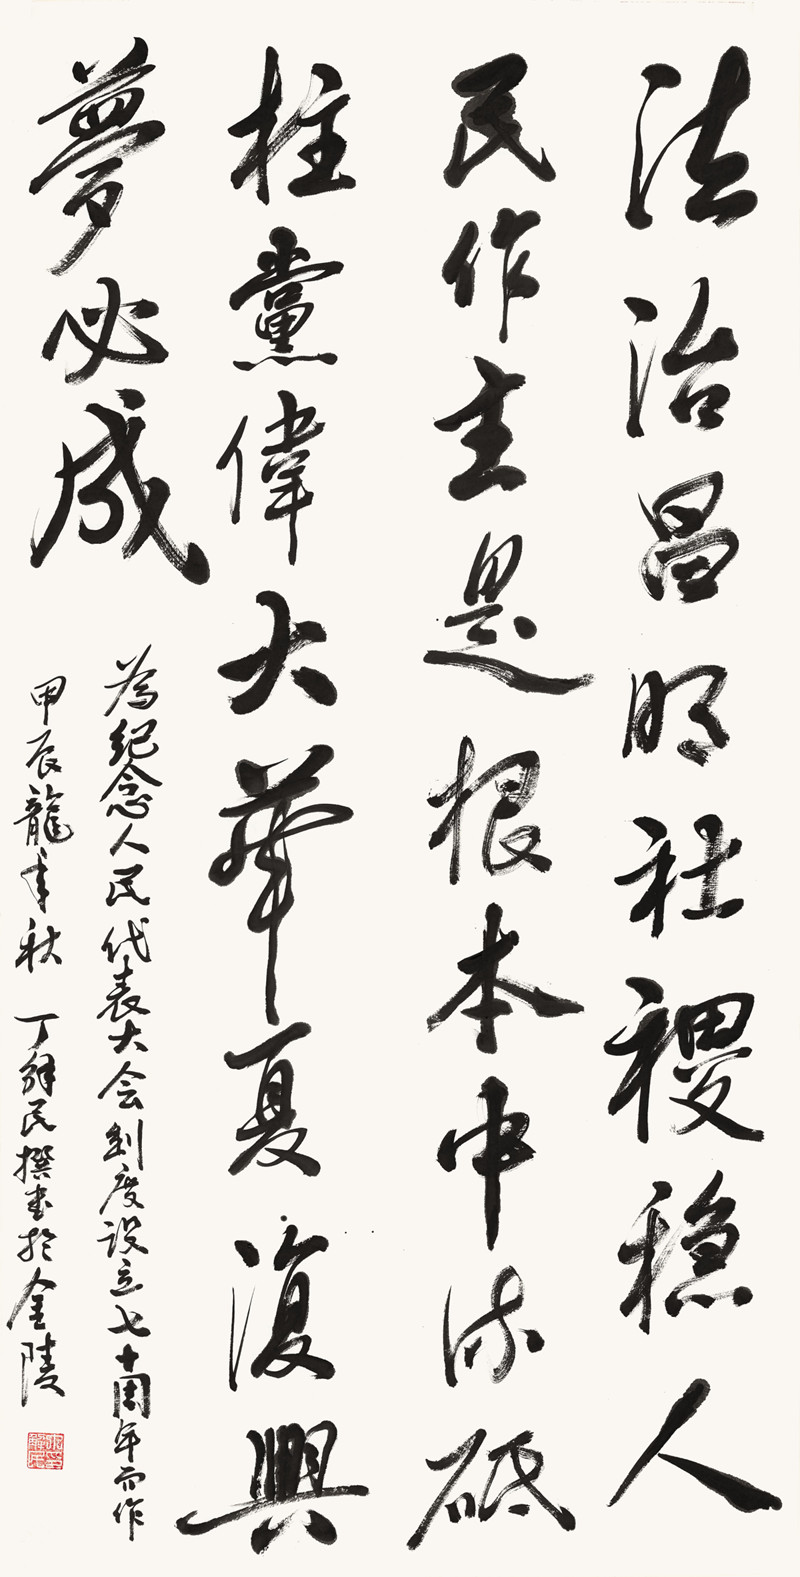 法治昌明社稷稳人
民作主是根本中流砥
柱黨偉大華夏復興
夢必成
為紀念人民代表大会制度设立七十周年而作
甲辰龍年秋 丁解民撰书於金陵